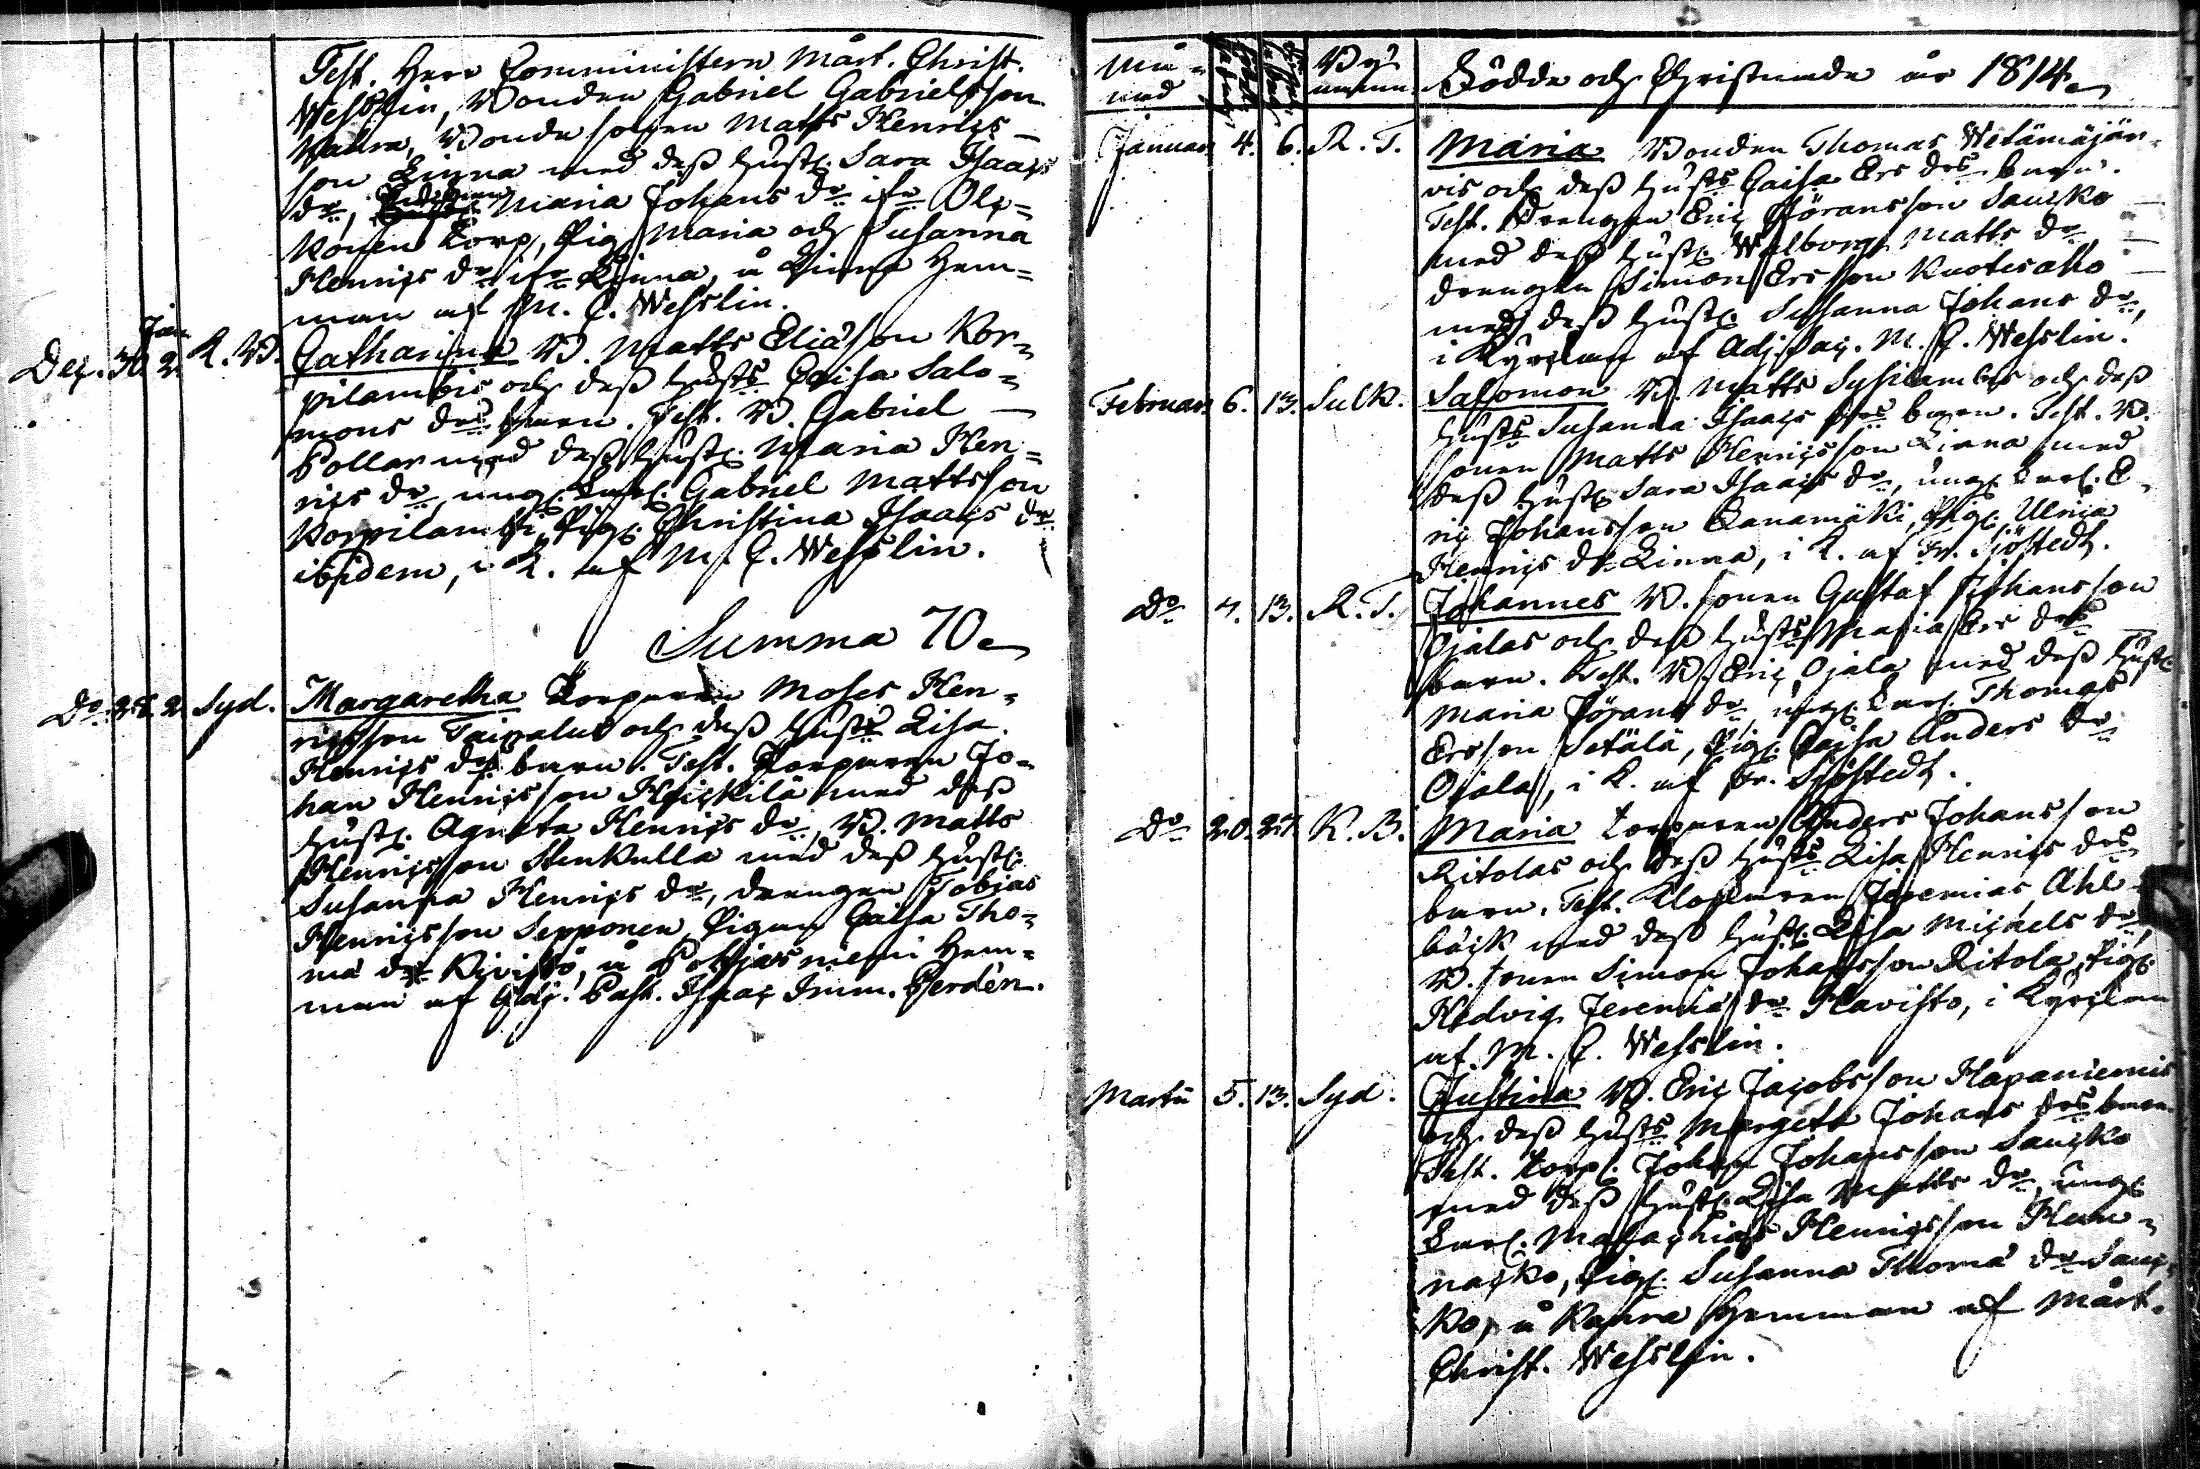 Test. Herr Comministern Mårt. Christ.
Wesslin, Bonden Gabriel Gabrielsson
Kahra, Bondesonen Matts Henrics-
son Linna med dess hustr. Sara Isaacs
dr, Maria Johans dr ifr. Ol-
konen torp, Pig. Maria och Susanna
Henrics dr ifr. Linna, å Linna Hem-
man af M. C. Wesslin.
Jan.
Dec. 30 2. K. B. Catharina B. Matts Eliasson Kor-
pilambis och dess hustrs Caisa Salo-
mons drs barn. Test. B. Gabriel
Pollar med dess hustr. Maria Hen-
rics dr, ung. karl. Gabriel Mattsson
Korpilambi, Pig. Christina Isaacs dr
ibidem, i K. af M. C. Wesslin.
Summa 70
Do 2. Syd. Margaretha Torparen Moses Hen-
ricsson Taipalus och dess hustrs Lisa
Henrics drs barn. Test. Torparen Jo-
han Henricsson Heickilä med dess
hustr. Agneta Henrics dr, B. Matts
Henricsson Stenkulla med dess hustr.
Susanna Henrics dr, drengen Tobias
Henricsson Sepponen, Pigan Caisa Tho-
mæ dr Kivistö, å Pohjasniemi Hem-
man af Adj. Past. Isaac Imm. Perdén.
Må-
nad
By
namn
Födde och Christnade år 1814
Januari 4. 6. R. T. Maria Bonden Thomas Wetämäjär-
vis och dess hustrs Caisa Ers drs barn.
Test. Drengen Eric Göransson Saucko
med dess hustr. Walborg Matts dr
drengen Simon Ersson Kuotesaho
med dess hustr. Susanna Johans dr,
i Kyrckan af Adj. Sac. M. C. Wesslin.
Februari 6. 13. Sulk. Salomon B. Matts Sysilambis och dess
hustrs Susanna Isaacs drs barn. Test. B.
sonen Matts Henricsson Linna med
dess hustr. Sara Isaacs dr, ung. karl. E-
ric Johansson Lanamäki, Pig. Ulrica
Henrics dr Linna, i K. af Fr. Sjöstedt.
Do 7. 13. R. T. Johannes B. sonen Gustaf Johansson
Ojalas och dess hustrs Maria Ers drs
barn. Test. B. Eric Ojala med dess hustr.
Maria Görans dr, ung. karl. Thomas
Ersson Setälä, Pig. Caisa Anders dr
Ojala, i K. af Fr. Sjöstedt.
Do 20. 27. K. B. Maria Torparen Anders Johansson
Ritolas och dess hustrs Lisa Henrics drs
barn. Test. Klockaren Jeremias Ahl-
bäck med dess hustr. Lisa Michels dr,
B. sonen Simon Johansson Ritola, Pig.
Hedvig Jeremiæ dr Havisto, i Kyrckan
af M. C. Wesslin.
Martii 5. 13. Syd. Justina B. Eric Jacobsson Hapaniemis
och dess hustrs Margeta Johans drs barn.
Test. Torp. Johan Johansson Saucko
med dess hustr. Lisa Matts dr, ung.
karl. Malachias Henricsson Han-
nacko, Pig. Susanna Thomæ dr Sauc-
ko, å Kahra Hemman af Mårt.
Christ. Wesslin.